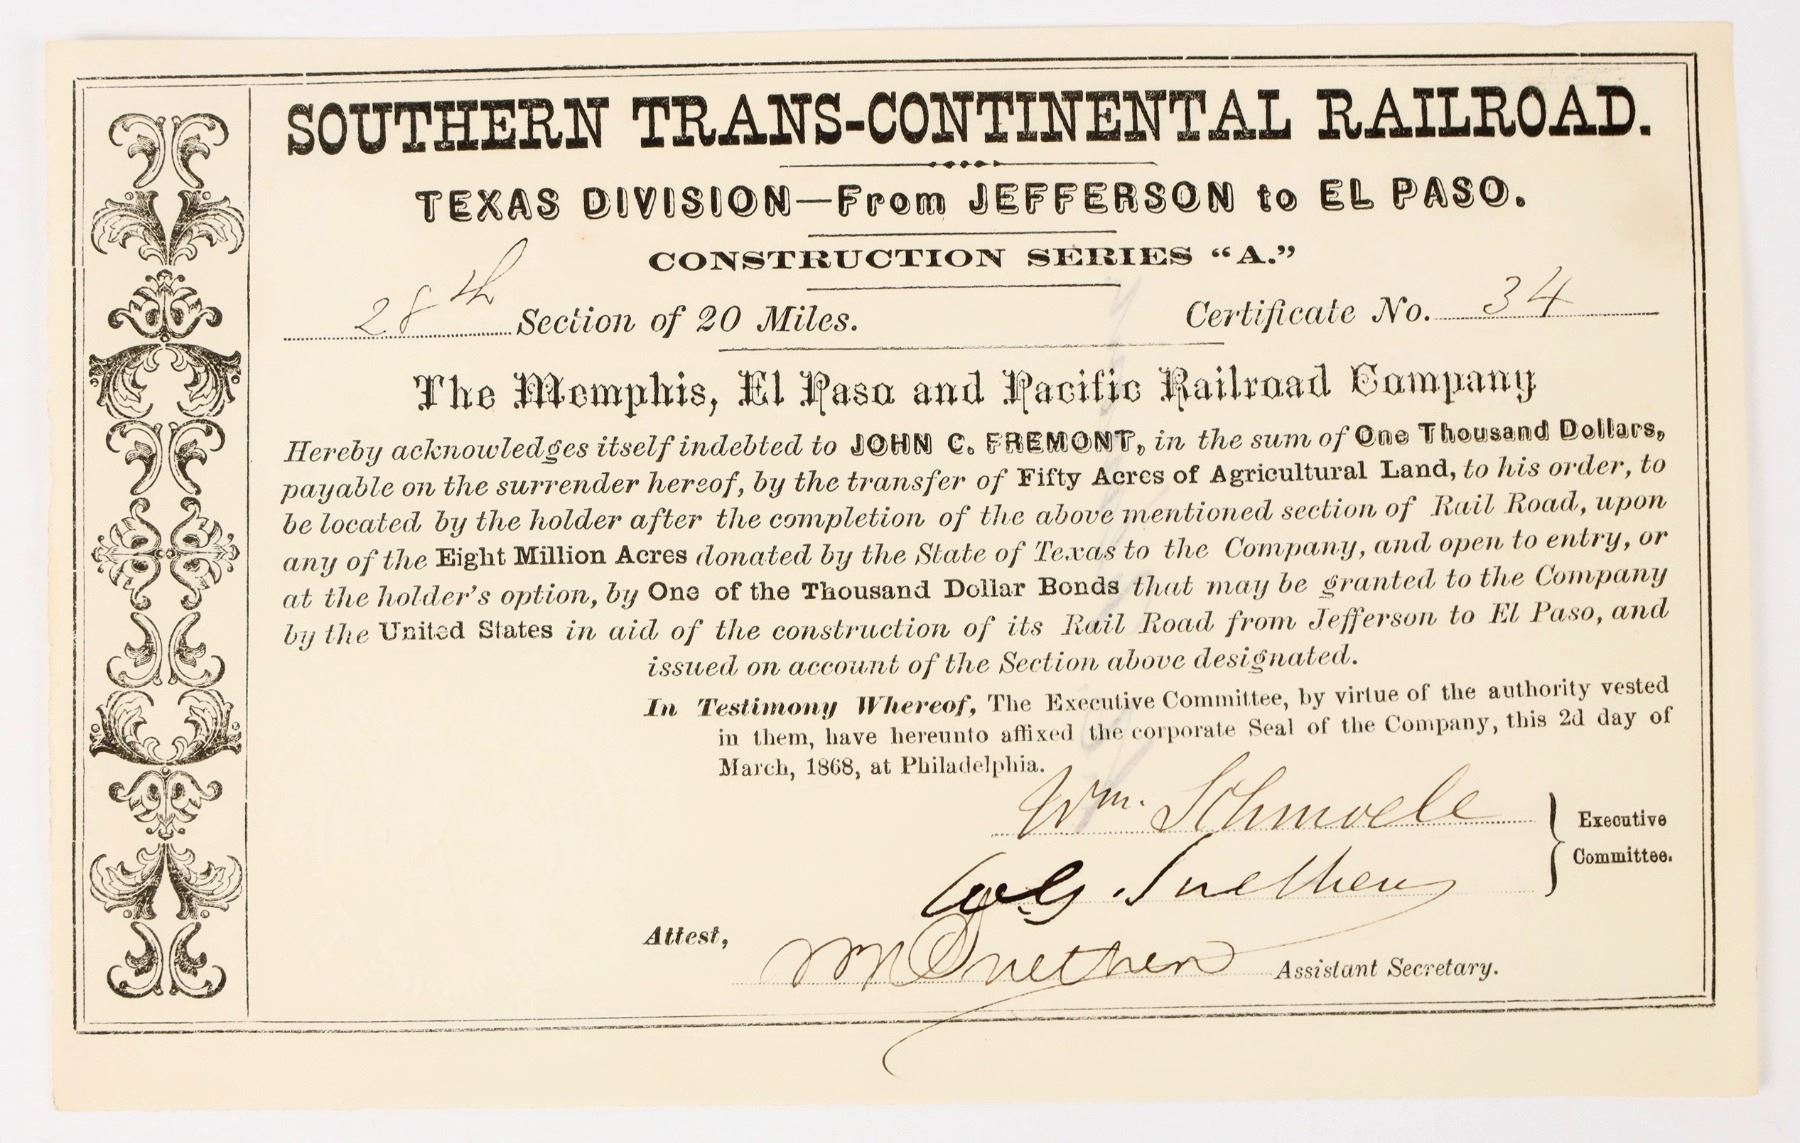 SOUTHERN TRANS-CONTINENTAL RAILROAD.
TEXAS DIVISION—From JEFFERSON to EL PASO.
CONSTRUCTION SERIES "A."
28th Section of 20 Miles. Certificate No. 34
The Memphis, El Paso and Pacific Railroad Company
Hereby acknowledges itself indebted to JOHN C. FREMONT, in the sum of One Thousand Dollars,
payable on the surrender hereof, by the transfer of Fifty Acres of Agricultural Land, to his order, to
be located by the holder after the completion of the above mentioned section of Rail Road, upon
any of the Eight Million Acres donated by the State of Texas to the Company, and open to entry, or
at the holder's option, by One of the Thousand Dollar Bonds that may be granted to the Company
by the United States in aid of the construction of its Rail Road from Jefferson to El Paso, and
issued on account of the Section above designated.
In Testimony Whereof, The Executive Committee, by virtue of the authority vested
in them, have hereunto affixed the corporate Seal of the Company, this 2d day of
March, 1868, at Philadelphia.
Wm. Schmoele
Executive
Committee.
Snethen
Attest,
Snethen Assistant Secretary.